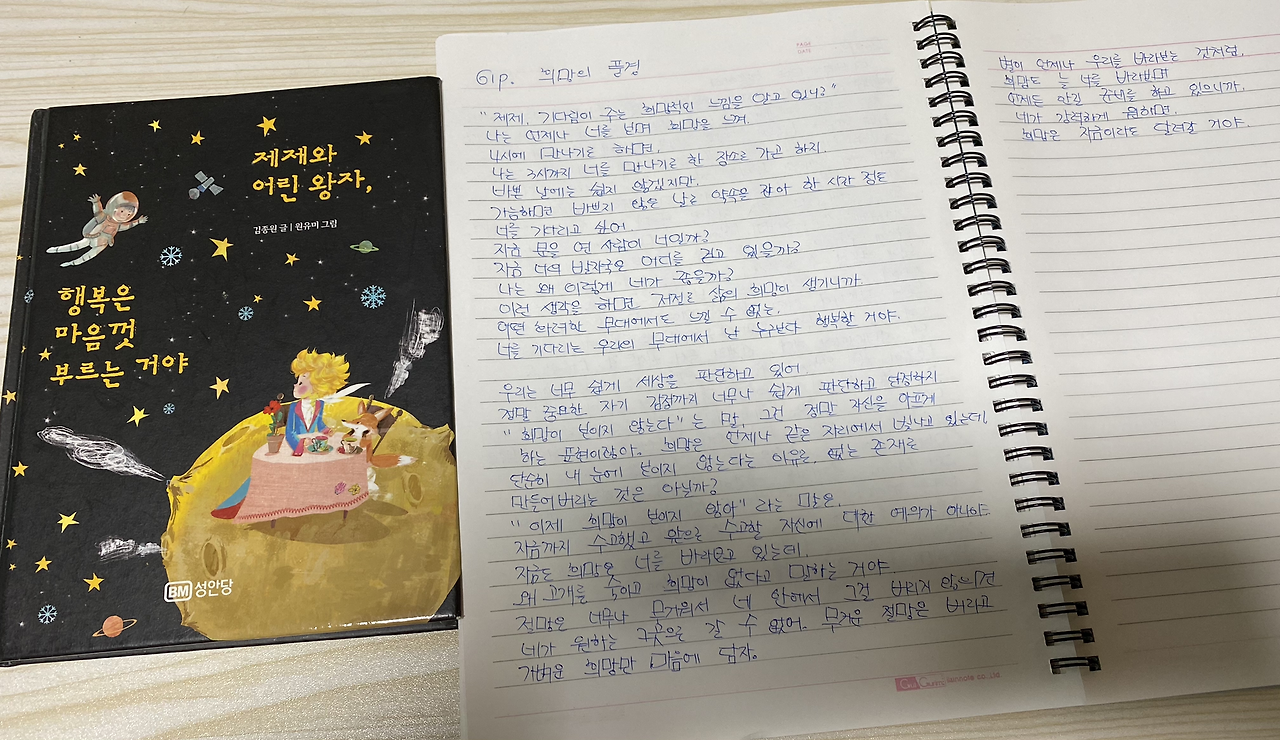 제제와
어린 왕자,
김종원 글 | 원유미 그림
행복은
마음껏
부르는 거야
BM 성안당
PAGE
DATE
61p. 희망의 풍경
"제제, 기다림이 주는 희망적인 느낌을 알고 있니?"
나는 언제나 너를 보며 희망을 느껴.
4시에 만나기로 하면,
나는 3시까지 너를 만나기로 한 장소로 가곤 하지.
바쁜 날에는 쉽지 않겠지만,
가능하면 바쁘지 않은 날로 약속을 잡아 한 시간 정도
너를 기다리고 싶어.
지금 문을 연 사람이 너일까?
지금 너의 발자국은 어디를 걷고 있을까?
나는 왜 이렇게 네가 좋을까?
이런 생각을 하면 저절로 삶의 희망이 생기니까
어떤 화려한 무대에서도 느낄 수 없는,
너를 기다리는 우리의 무대에서 난 누구보다 행복한 거야.
우리는 너무 쉽게 세상을 판단하고 있어
정말 중요한 자기 감정까지 너무나 쉽게 판단하고 단정하지
"희망이 보이지 않는다"는 말, 그건 정말 자신을 아프게
하는 표현이잖아. 희망은 언제나 같은 자리에서 빛나고 있는데,
단순히 내 눈에 보이지 않는다는 이유로, 없는 존재로
만들어버리는 것은 아닐까?
"이제 희망이 보이지 않아"라는 말은,
지금까지 수고했고 앞으로 수고할 자신에 대한 예의가 아니야.
지금도 희망은 너를 바라보고 있는데,
왜 고개를 숙이고 희망이 없다고 말하는 거야
절망은 너무나 무거워서 네 안에서 그걸 버리지 않으면
네가 원하는 곳으로 갈 수 없어. 무거운 절망은 버리고
가벼운 희망만 마음에 담자.
별이 언제나 우리를 바라보는 것처럼,
희망도 늘 너를 바라보며
언제든 안길 준비를 하고 있으니까.
네가 강력하게 원하면,
희망은 지금이라도 달려갈 거야.